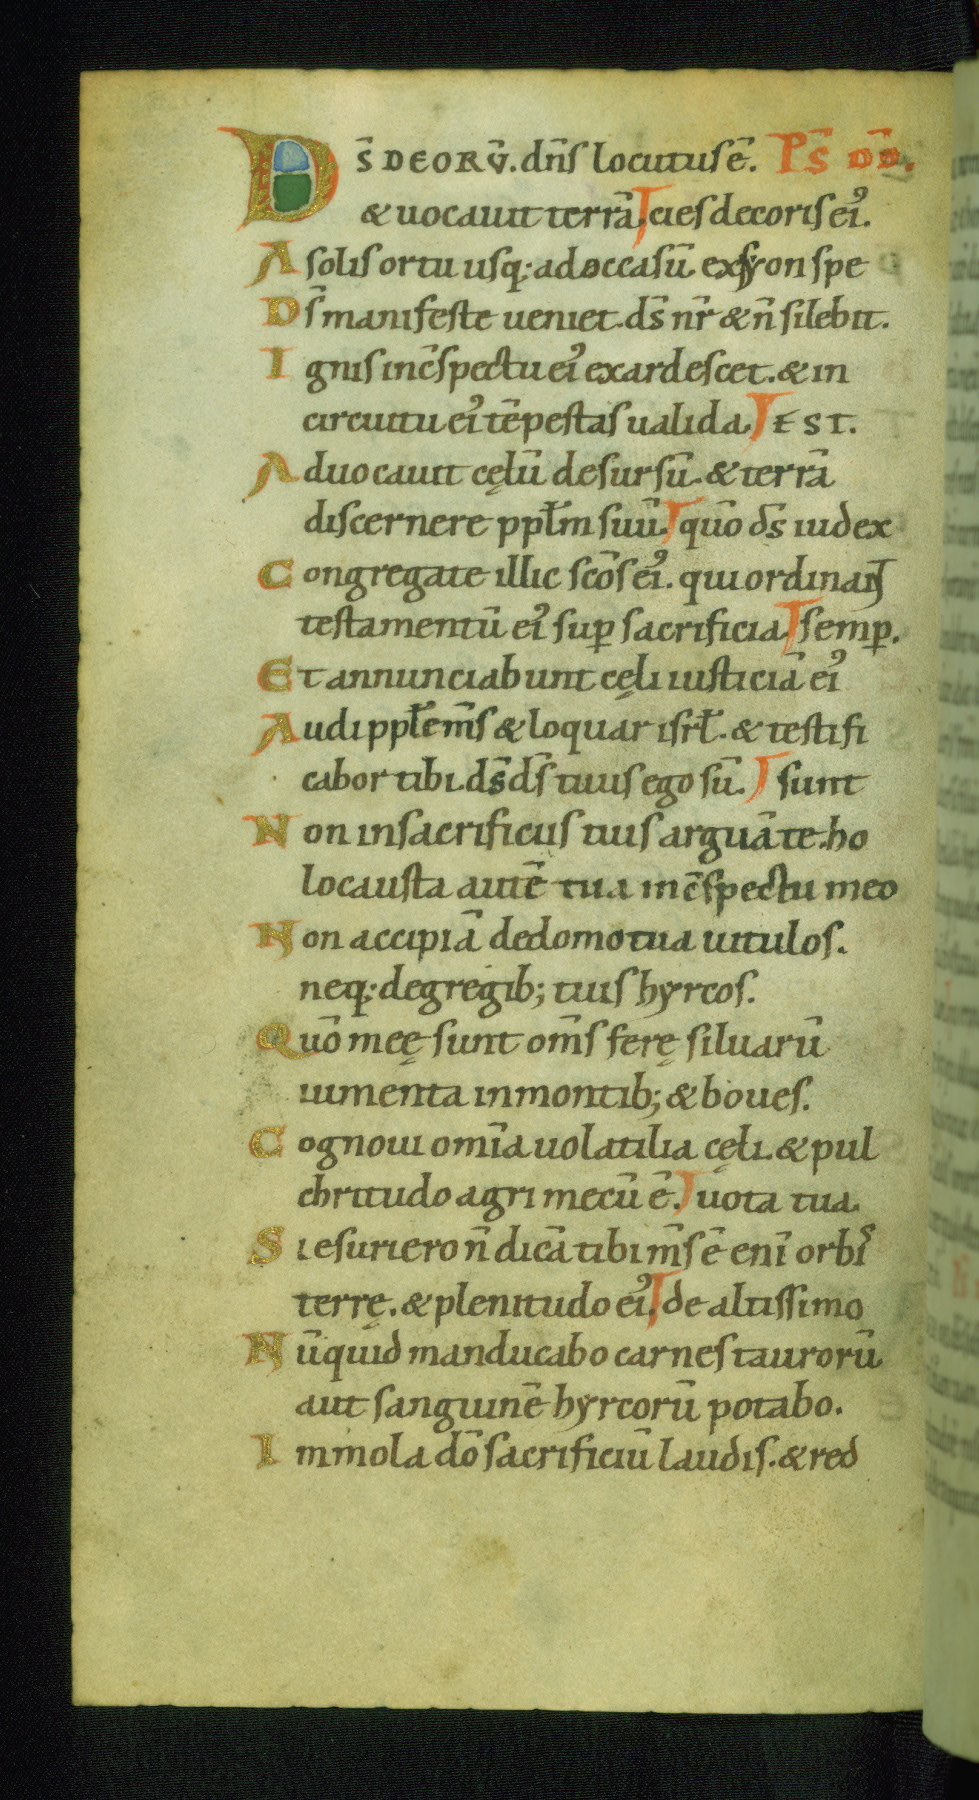 DS̄ DEORV̄. dn̄s locutus ē. PS̄ DD̄.
& uocauit terrā cies decoris ei᾿.
A solis ortu usq; ad occasū ex syon spe
Ds̄ manifeste ueniet. ds̄ nr̄ & n̄ silebit.
Ignis in c̄spectu ei᾿ exardescet. & in
circuitu ei᾿ tēpestas ualida. EST.
Aduocauit cęlū desursū. & terrā
discernere pplm̄ suū. qūo ds̄ iudex
Congregate illic scōs ei᾿. qui ordinant
testamentū ei᾿ sup̱ sacrificia semp̱.
Et annunciabunt cęli iusticiā ei᾿
Audi pple m̄s & loquar isrł. & testifi
cabor tibi. ds̄ ds̄ tuus ego sū. sunt
Non in sacrificiis tuis arguā te. ho
locausta autē tua in c̄spectu meo
Non accipiā de domo tua uitulos.
neq; de gregib; tuis hyrcos.
Qūo meę sunt om̄s ferę siluarū
iumenta in montib; & boues.
Cognoui om̄ia uolatilia cęli. & pul
chritudo agri mecū ē. uota tua
Si esuriero n̄ dicā tibi m̄s ē eni orbis
terrę. & plenitudo ei᾿. de altissimo
Nūquid manducabo carnes taurorū
aut sanguinē hyrcorū potabo.
Immola dō sacrificiū laudis. & red